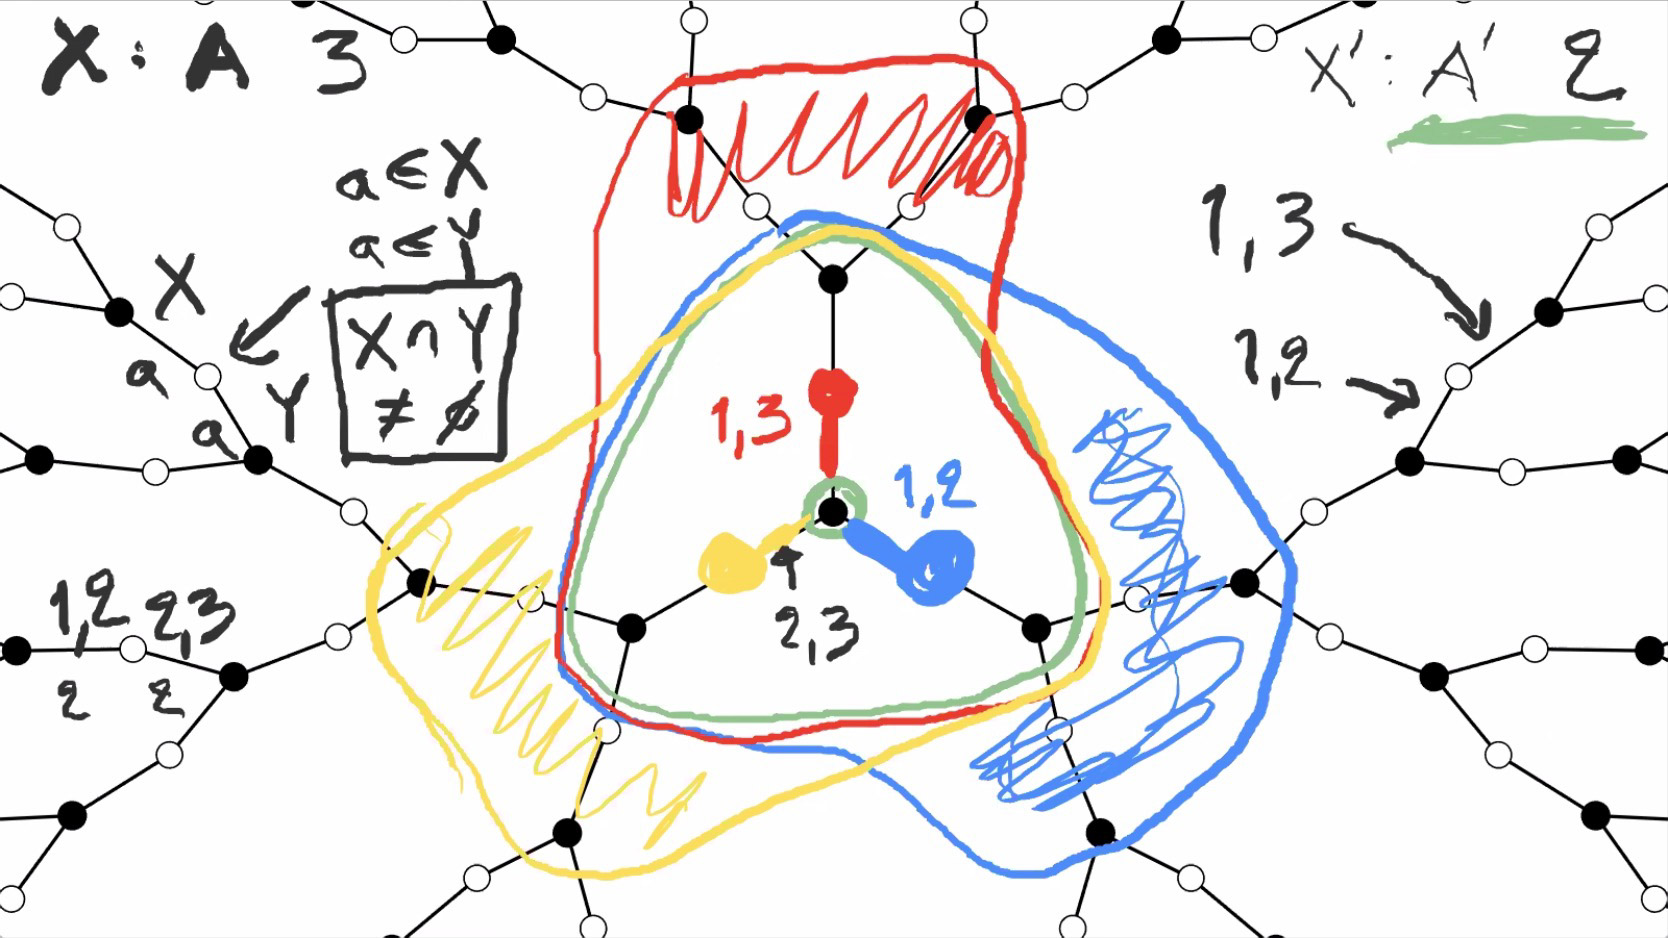 X : A 3
X' : A' 2
a ∈ X
a ∈ Y
X ∩ Y
≠ ∅
X
a
Y
a
1,3
1,2
1,3
1,2
2,3
1,2 2,3
2 2